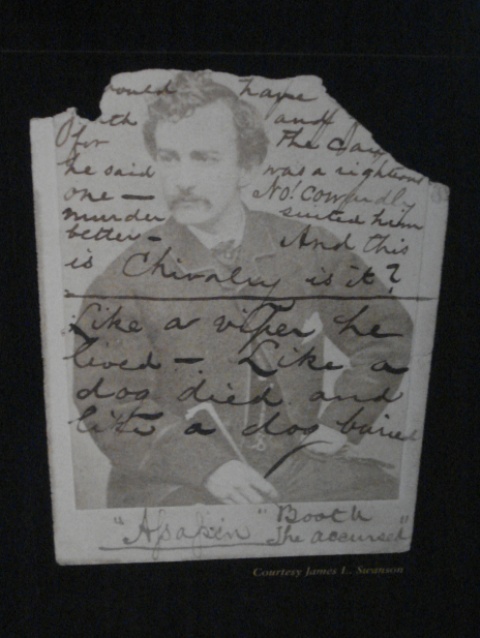 would have
and
for the cau
he said was a righteous
one — No! Cowardly
murder suited him
better — And this
is Chivalry is it?
Like a viper he
lived — Like a
dog died and
like a dog buried
"Assassin" Booth
"The accursed"
Courtesy James L. Swanson